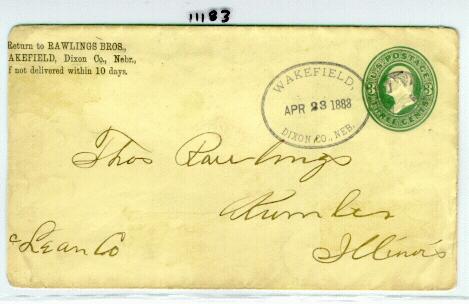 11183
Return to RAWLINGS BROS.,
AKEFIELD, Dixon Co., Nebr.,
f not delivered within 10 days.
WAKEFIELD,
APR 23 1883
DIXON CO., NEB.
U.S. POSTAGE
3 3
THREE CENTS
Thos Rawlings
Rumler
c Lean Co
Illinois